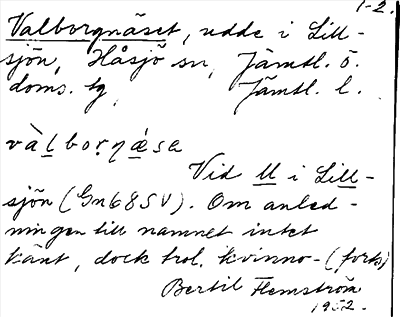 1-2.
Valborgnäset, udde i Lill-
sjön, Håsjö sn, Jämtl. ö.
doms. tg, Jämtl. l.
vàlboṛŋǽsa
Vid ll i Lill-
sjön (Gn68SV). Om anled-
ningen till namnet intet
känt, dock trol. kvinno- (forts)
Bertil Flemström
1952.